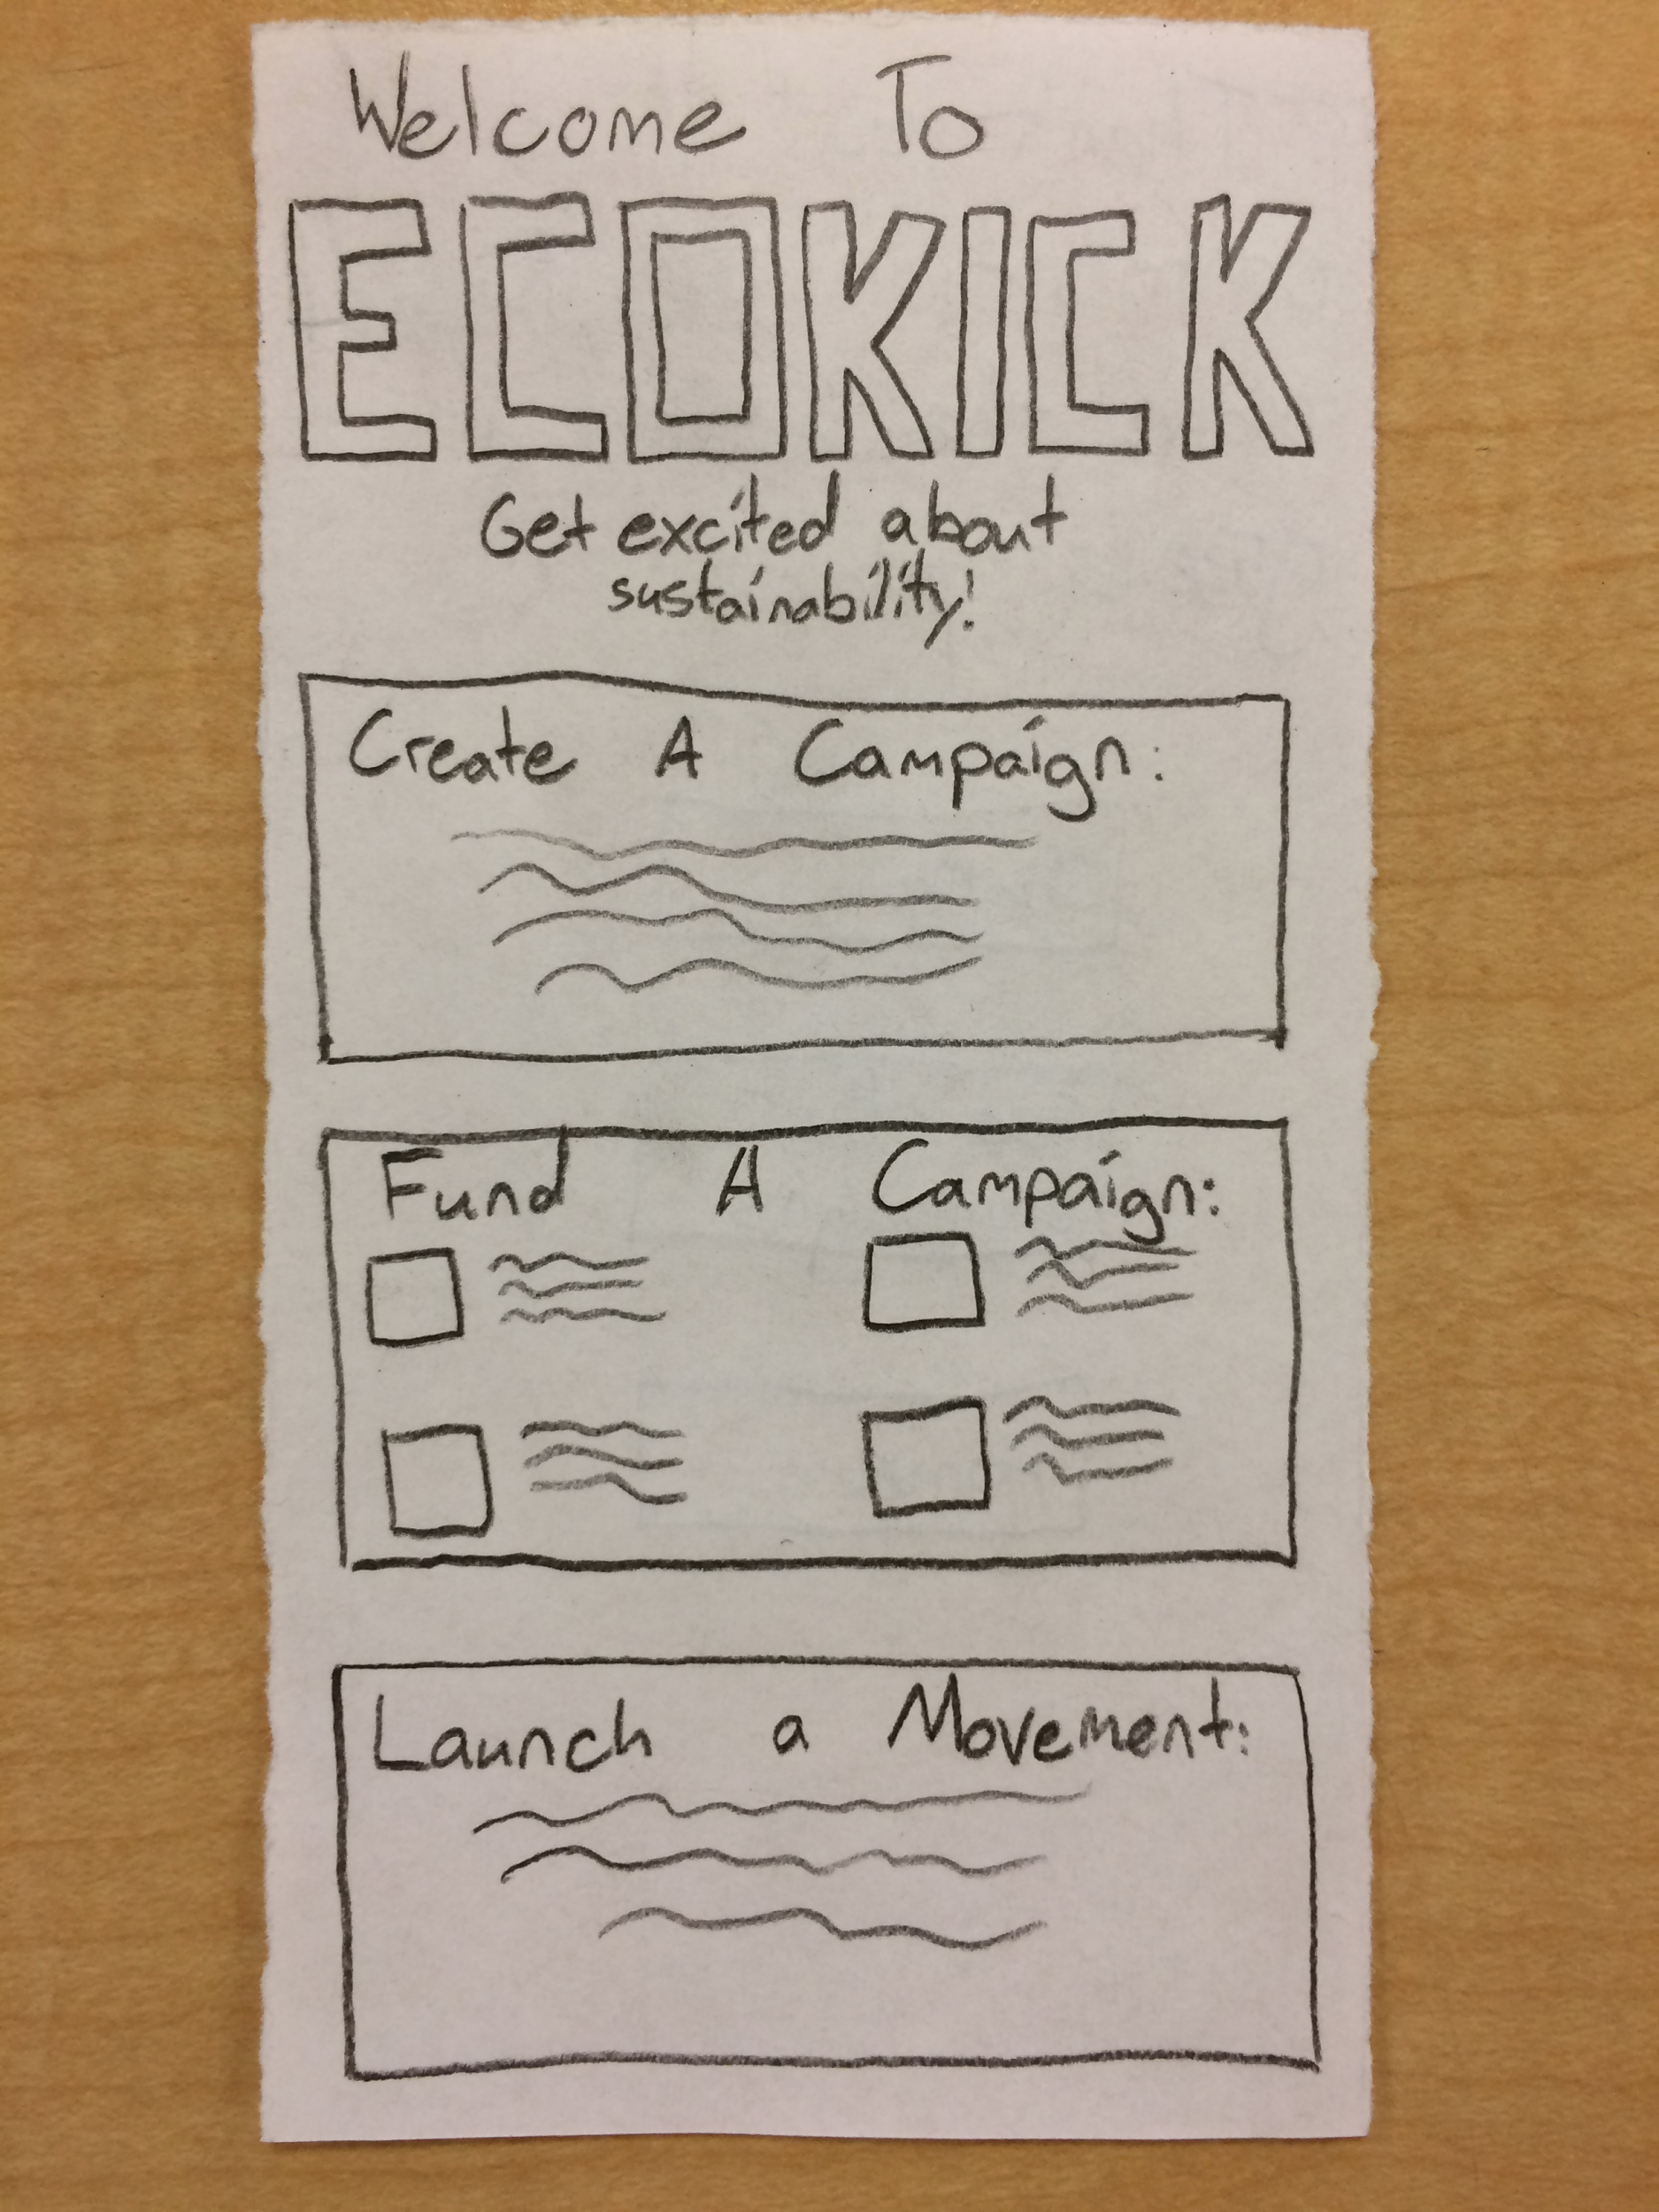 Welcome To
ECOKICK
Get excited about
sustainability!
Create A Campaign:
Fund A Campaign:
Launch a Movement: